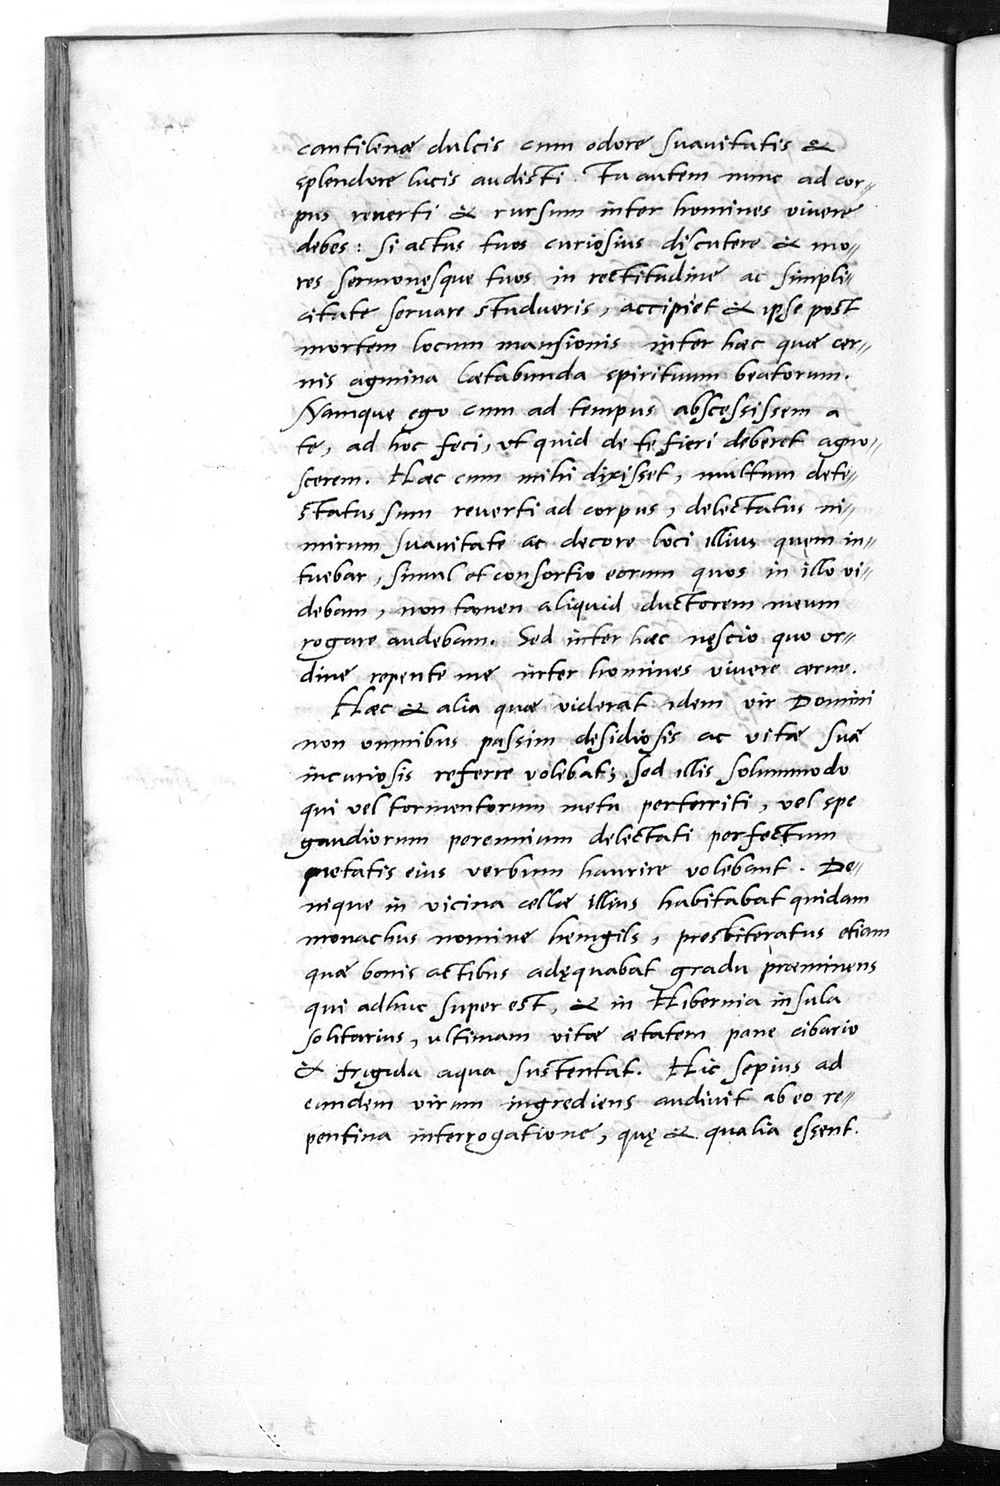 cantilenæ dulcis cum odore suauitatis &
splendore lucis audisti. Tu autem nunc ad cor-
pus reuerti & rursum inter homines viuere
debes: si actus tuos curiosius discutere & mo-
res sermonesque tuos in rectitudine ac simpli-
citate seruare studueris, accipiet & ipse post
mortem locum mansionis inter hæc quæ cer-
nis agmina lætabunda spirituum beatorum.
Namque ego cum ad tempus abscessissem a
te, ad hoc feci, vt quid de te fieri deberet agno-
scerem. Hæc cum mihi dixisset, multum dete-
status sum reuerti ad corpus, delectatus ni-
mirum suauitate ac decore loci illius quem in-
tuebar, simul et consortio eorum quos in illo vi-
debam, non tamen aliquid ductorem meum
rogare audebam. Sed inter hæc nescio quo or-
dine repente me inter homines viuere cerno.
Hæc & alia quæ viderat idem vir Domini
non omnibus passim desidiosis ac vitæ suæ
incuriosis referre volebat; sed illis solummodo
qui vel tormentorum metu perterriti, vel spe
gaudiorum perennium delectati perfectum
pietatis eius verbum haurire volebant. De-
nique in vicina cellæ illius habitabat quidam
monachus nomine hemgils, presbiteratus etiam
quæ bonis actibus adęquabat gradu præminens
qui adhuc super est, & in Hibernia insula
solitarius, vltimam vitæ ætatem pane cibario
& frigida aqua sustentat. Hic sepius ad
eundem virum ingrediens audiuit ab eo re-
pentina interrogatione, quę & qualia essent.